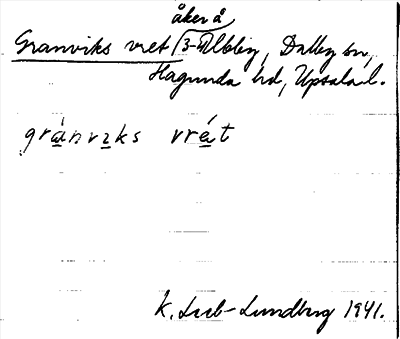 åker å
Granviks vret, Dalby sn,
Hagunda hd, Upsala l.
gránvɪks vrét
K. Lieb-Lundberg 1941.